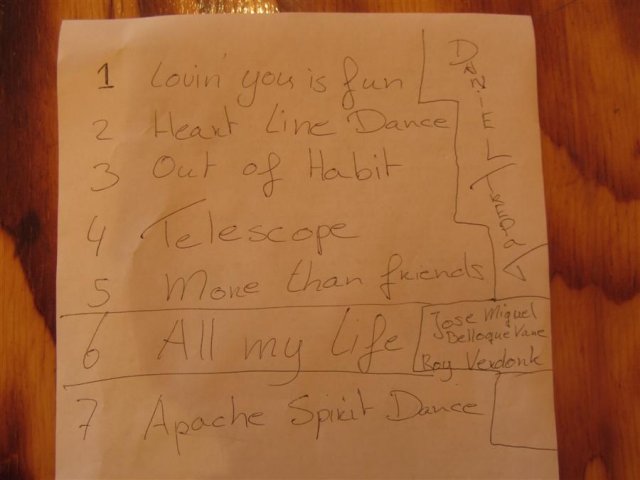 1 Lovin' you is fun
2 Heart Line Dance
3 Out of Habit
4 Telescope
5 More than friends
DANIEL
6 All my life
Jose Miguel
Belloque Vane
Roy Verdonk
7 Apache Spirit Dance